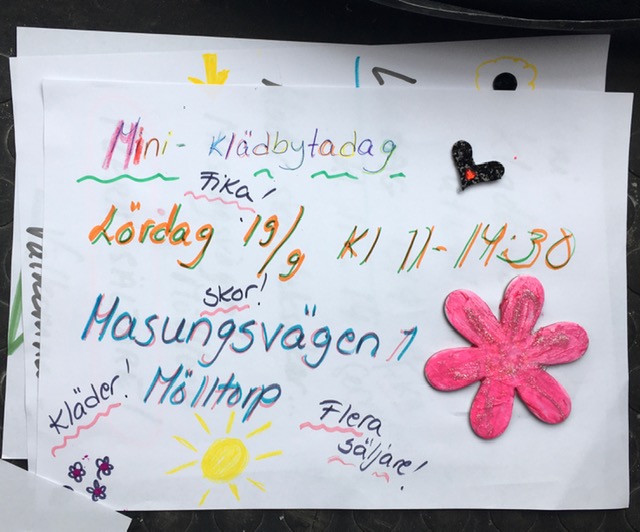 Mini- Klädbytadag
Fika!
Lördag 19/9 Kl 11-14:30
Skor!
Masungsvägen 1
Mölltorp
Kläder!
Flera
säljare!